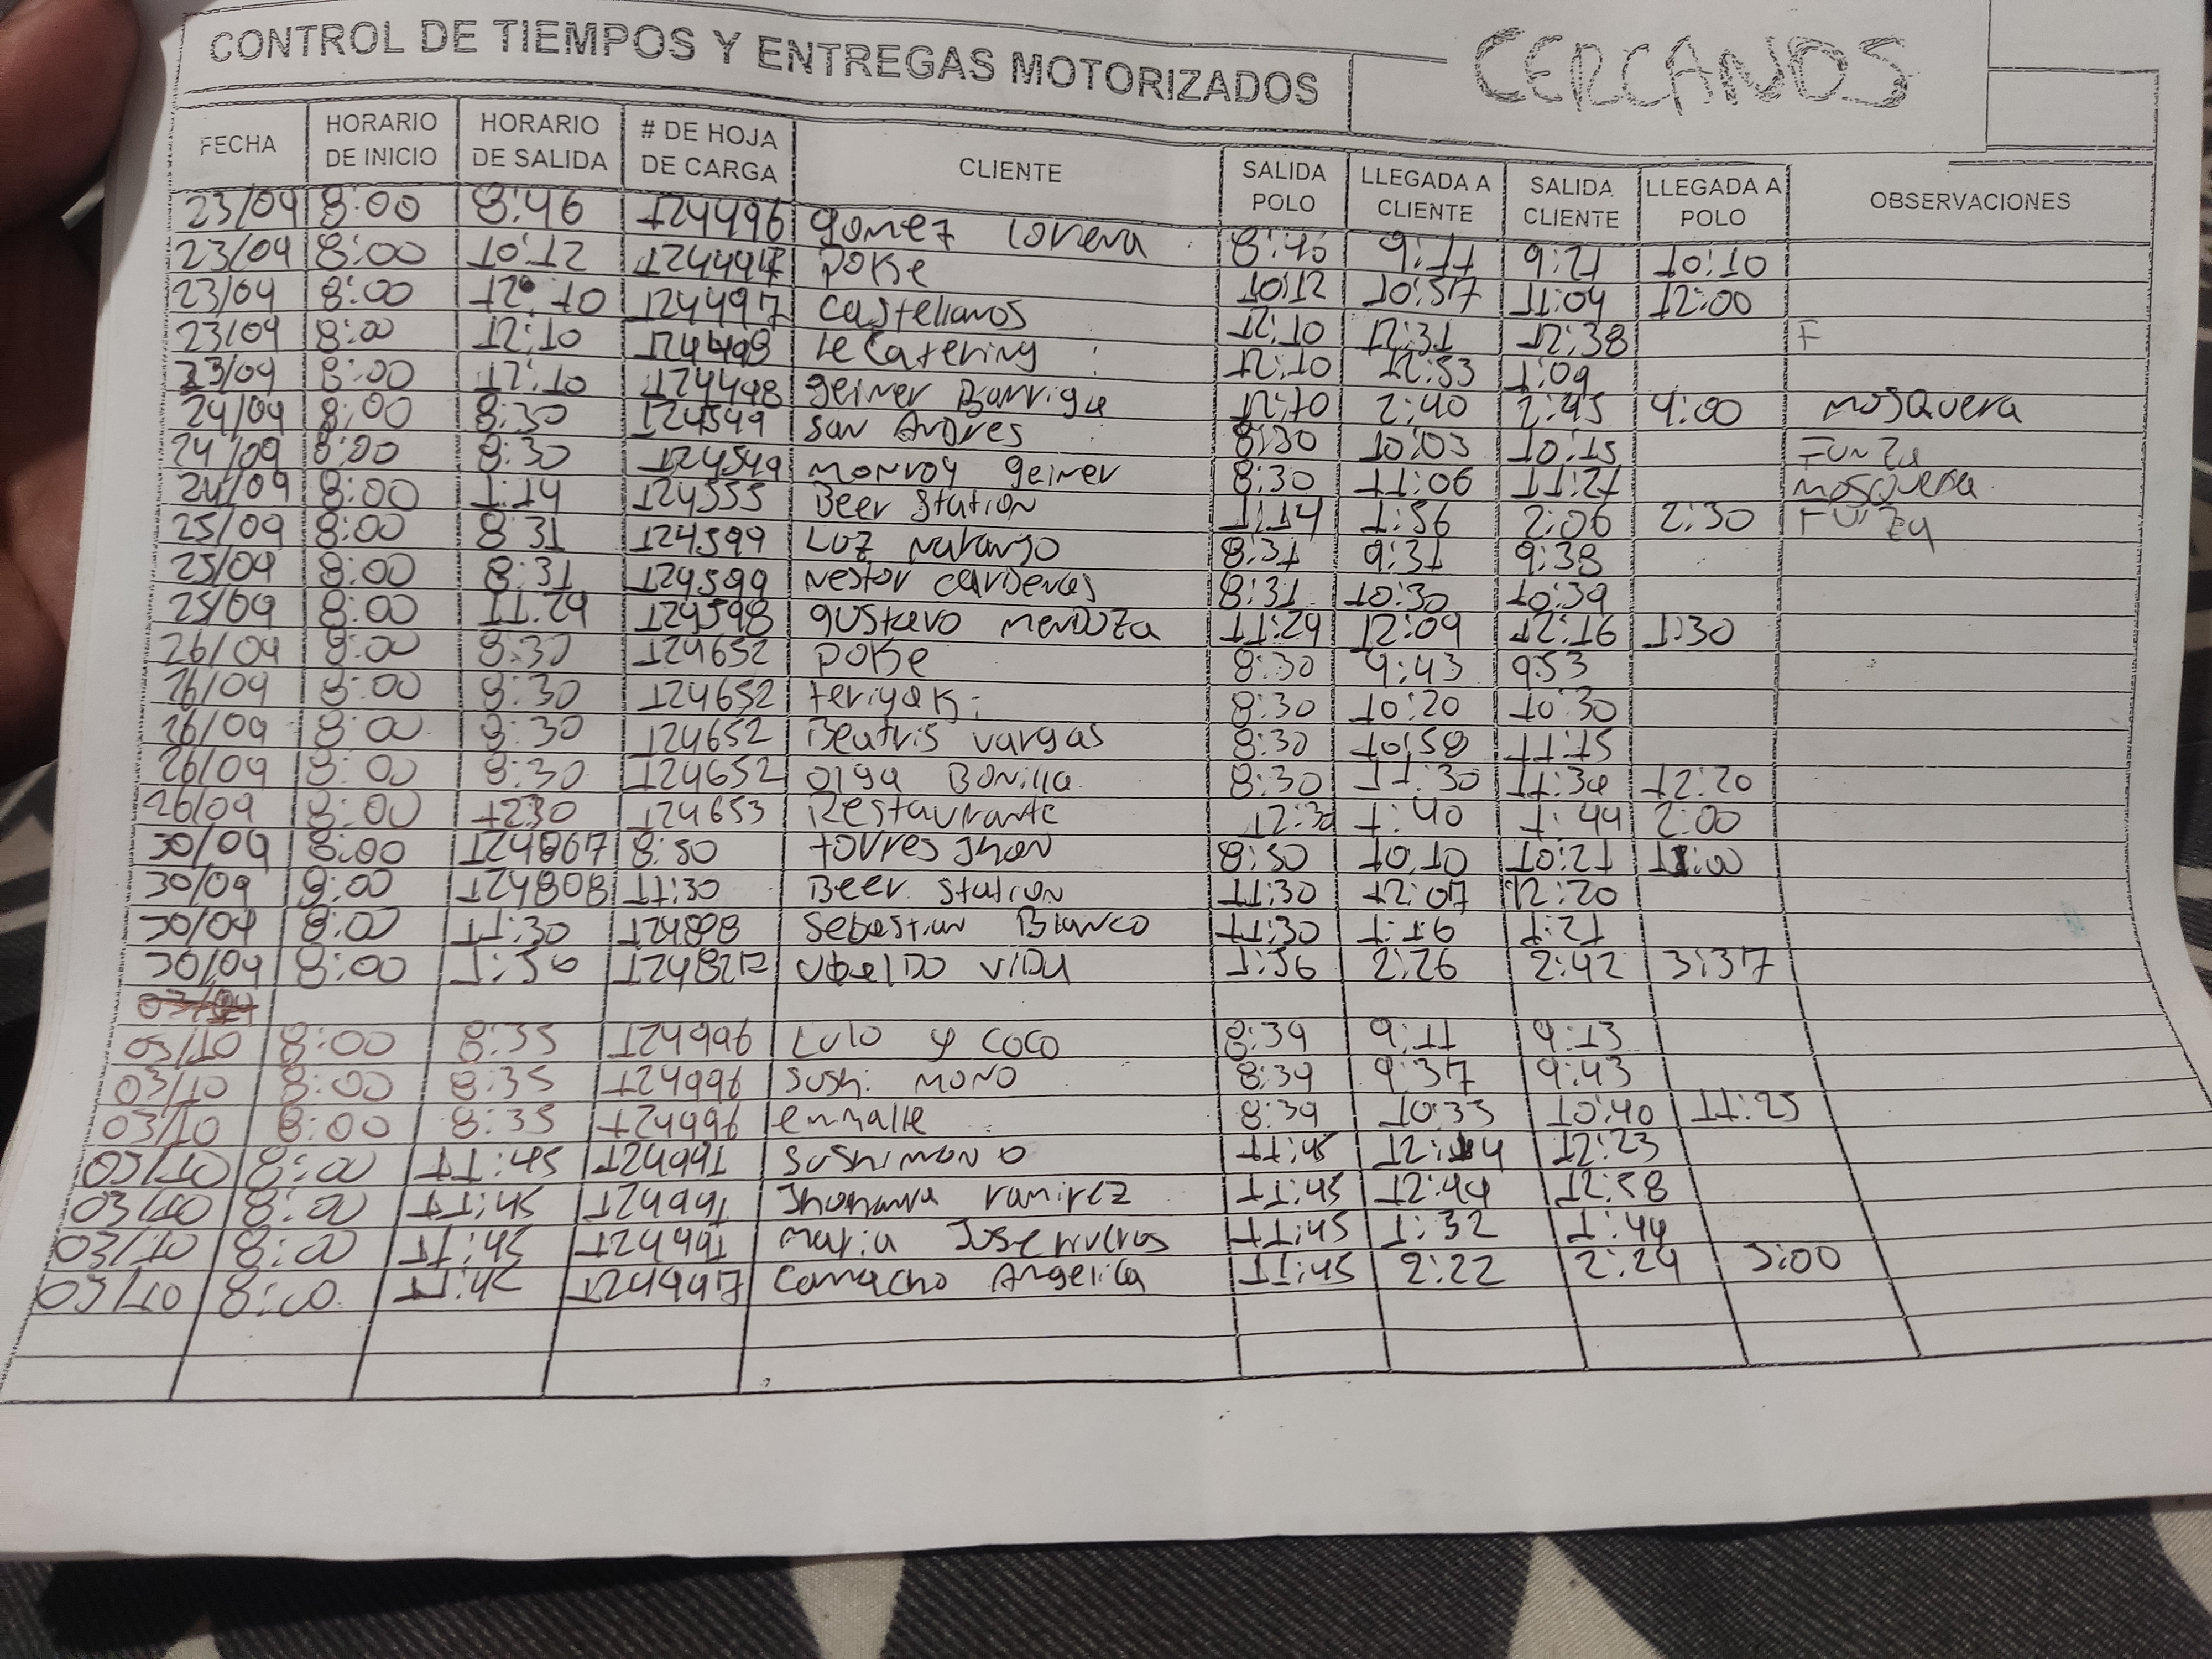 CONTROL DE TIEMPOS Y ENTREGAS MOTORIZADOS CERCANOS
FECHA HORARIO DE INICIO HORARIO DE SALIDA # DE HOJA DE CARGA CLIENTE SALIDA POLO LLEGADA A CLIENTE SALIDA CLIENTE LLEGADA A POLO OBSERVACIONES
23/09 8:00 8:46 124496 gomez Lorena 8:46 9:11 9:21 10:10
23/09 8:00 10:12 POKe 10:12 10:57 11:04 12:00
23/09 8:00 12:10 124497 Castellanos 12:10 12:31 12:38 F
23/09 8:00 12:10 124498 le Catering 12:10 12:53 1:09
23/09 8:00 12:10 124498 geiner Barriga 12:10 2:40 2:45 4:00 mosquera
24/09 8:00 8:30 124549 San Andres 8:30 10:03 10:15 Funza
24/09 8:00 8:30 124549 monroy geiner 8:30 11:06 11:21 mosquera
24/09 8:00 1:14 124555 Beer Station 1:14 1:56 2:06 2:30 Funza
25/09 8:00 8:31 124599 Luz naranjo 8:31 9:31 9:38
25/09 8:00 8:31 124599 nestor cardenas 8:31 10:30 10:39
25/09 8:00 11:29 124598 gustavo mendoza 11:29 12:09 12:16 1:30
26/09 8:00 8:30 124652 POKe 8:30 9:43 9:53
26/09 8:00 8:30 124652 teriyaki 8:30 10:20 10:30
26/09 8:00 8:30 124652 Beatris vargas 8:30 10:58 11:15
26/09 8:00 8:30 124652 olga Bonilla 8:30 11:30 11:39 12:20
26/09 8:00 1230 124653 Restaurante 12:30 1:40 1:44 2:00
30/09 8:00 124807 8:50 torres Jhon 8:50 10:10 10:21 11:00
30/09 8:00 124808 11:30 Beer Station 11:30 12:07 12:20
30/09 8:00 11:30 124808 Sebastian Blanco 11:30 1:19 1:21
30/09 8:00 1:56 ubaldo vida 1:56 2:26 2:42 3:37
03/10 8:00 8:35 124996 Lulo y coco 8:39 9:11 9:13
03/10 8:00 8:35 124996 Sushi mono 8:39 9:37 9:43
03/10 8:00 8:35 124996 enmalle 8:39 10:35 10:40 11:25
03/10 8:00 11:45 Sushi mono 11:45 12:14 12:23
03/10 8:00 11:45 Jhohanna ramirez 11:45 12:44 12:58
03/10 8:00 11:45 maria Jose 11:45 1:32 1:44
03/10 8:00 11:45 124997 Camacho Angelica 11:45 2:22 2:24 3:00